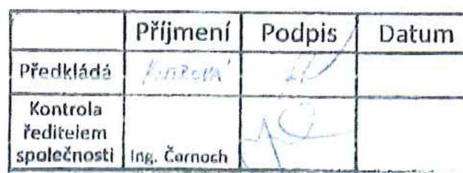 Příjmení Podpis Datum
Předkládá
Kontrola
ředitelem
společnosti Ing. Černoch